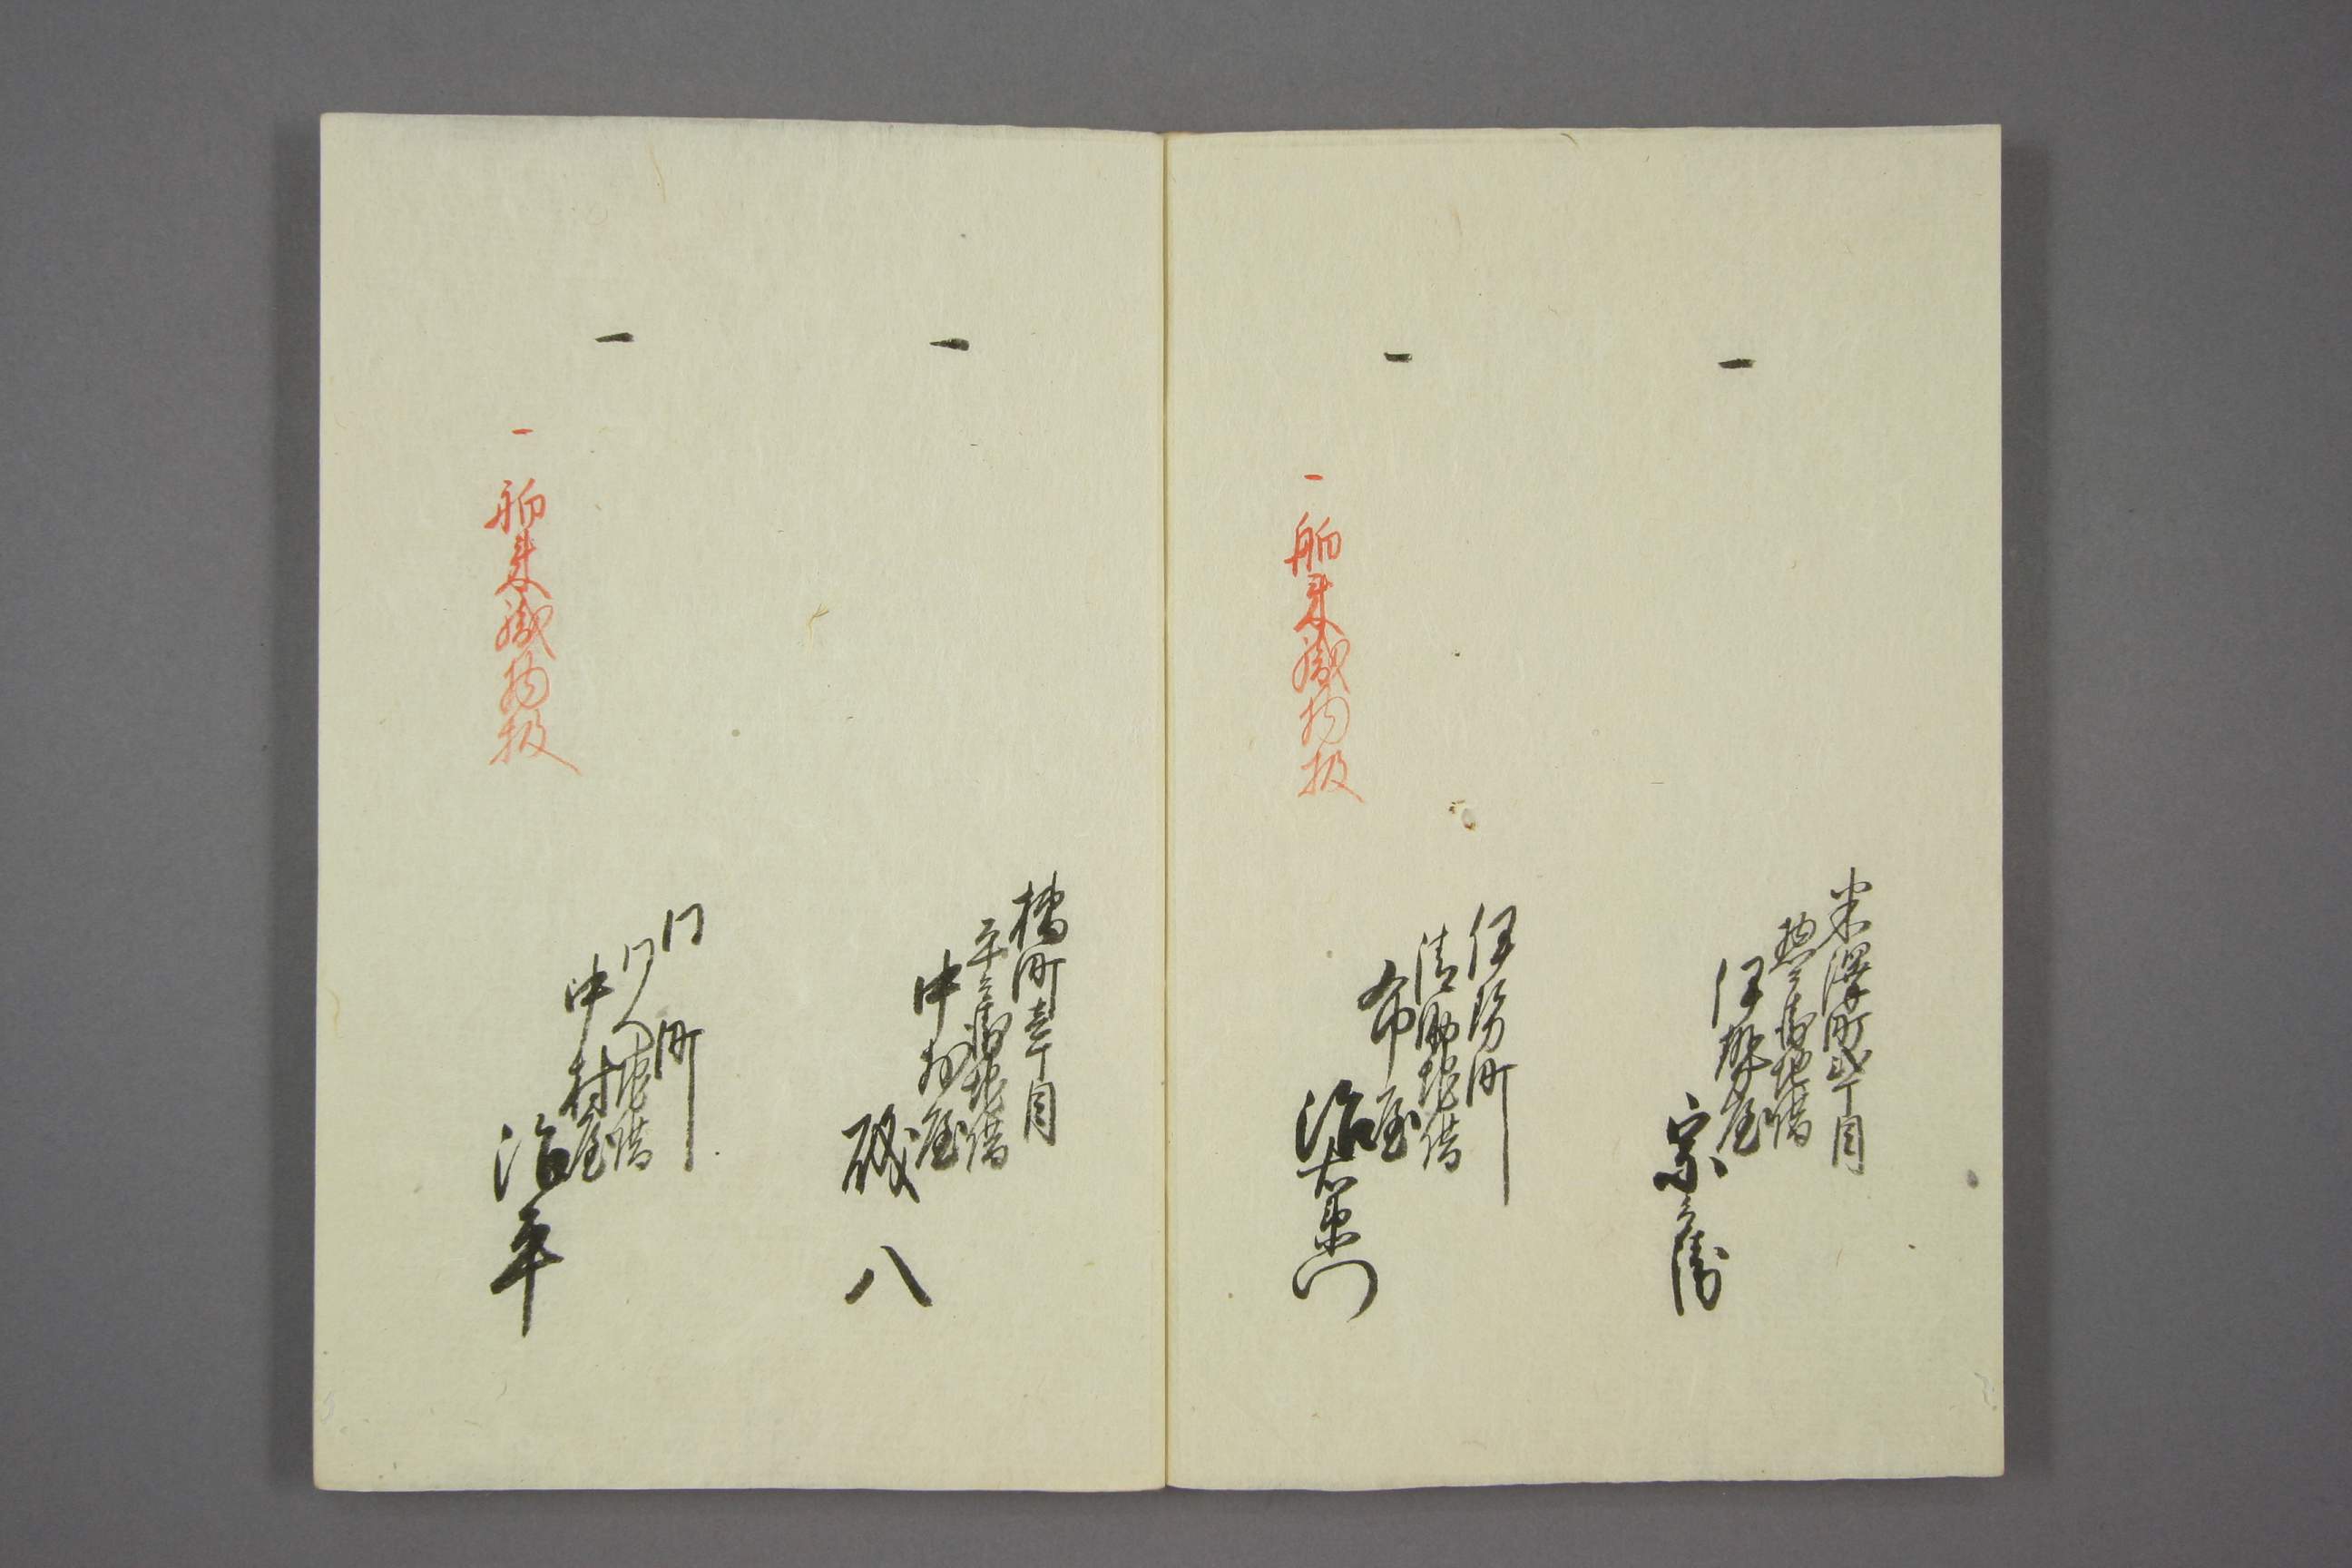 一
米澤町弐丁目
惣兵衛地借
伊勢屋
宗兵衛
一
伊勢町
清助地借
布屋
治右衛門
一舶来織物扱
一
橘町壱丁目
平兵衛地借
中村屋
磯八
一
同町
同人地借
中村屋
治平
一舶来織物扱